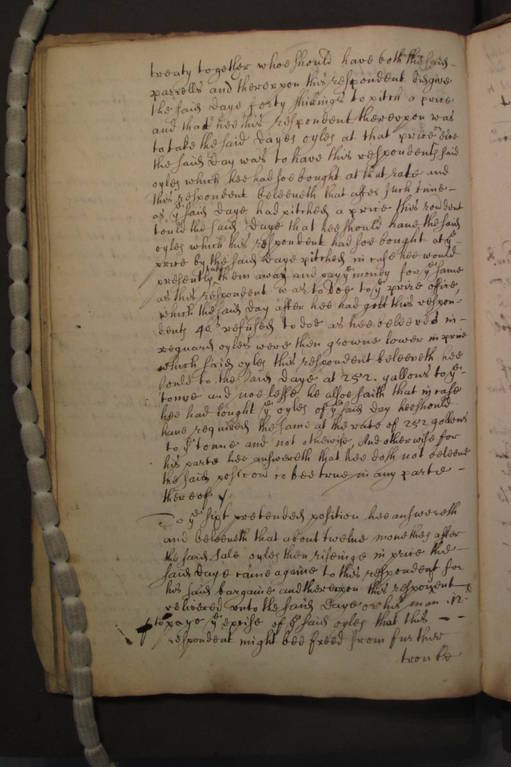 treaty together whoe should have both the said
parcells and therevpon this respondent did give
the said Daye forty shillings to pitch a price
and that hee this respondent therevpon was
to take the said Dayes oyles at that price or
the said Day was to have this respondents said
oyles which hee had soe bought at that rate and
this respondent beleeveth that after such time
as ye said Daye had pitched a price this respondent
tould the said Daye that hee should have the said
oyles which this respondent had soe bought at ye
price by the said Daye pitched in case hee would
presently them away and pay ye money for ye same
as this respondent was to doe to ye price office
which the said Day after hee had gott this respon
dents 40s refused to doe as hee beleeves in
reguard oyles were then growne lower in price
which said oyles this respondent beleeveth hee
sould to the said Daye at 252. gallons to ye
tonne and noe lesse he allsoe saith that in case
hee had bought ye oyles of ye said Day hee should
have required the same at the rate of 252 gallons
to ye tonne and not otherwise, And otherwise for
his parte hee answereth that hee doth not beleeve
the said position to bee true in any parte
thereof
To ye sixt pretended position hee answereth
and beleeveth that about twelve monethes after
the said sale oyles then riseinge in price the
said Daye came againe to this respondent for
his said bargaine and therevpon this respondent
delivered vnto the said Daye or his man
to paye ye excise of ye said oyles that this
respondent might bee freed from further
trouble